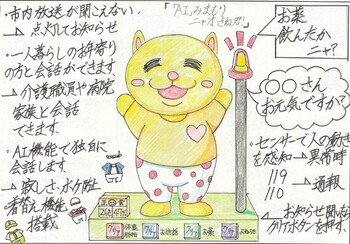 市内放送が聞こえない
→ 点灯してお知らせ
・一人暮らしのお年寄り
の方と会話ができます
→ 介護職員や病院
家族と会話
できます。
・AI機能で独自に
会話します。
→ 寂しさ・ボケ防止
着替え機能
搭載
「AIみまもり
ニャオさね君!」
お薬
飲んだか
ニャ?
○○さん
お元気ですか?
・センサーで人の動き
を感知→異常時
119
110
→ 通報
お知らせ聞いたら
クリアボタンを押す。
体重
お世話
お薬